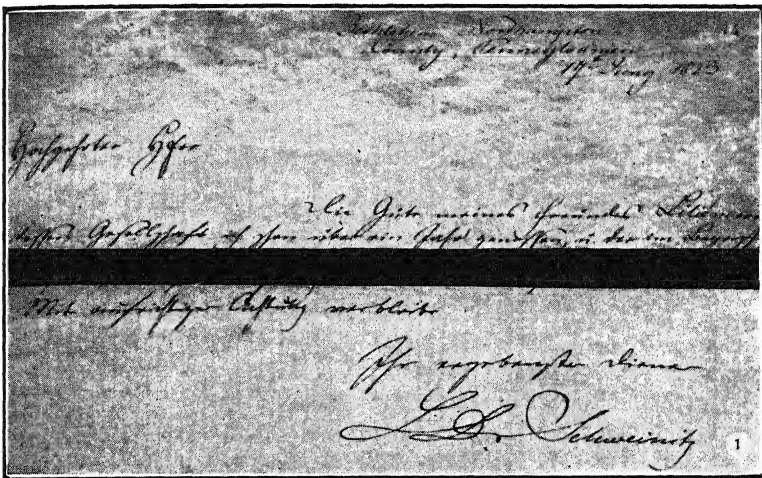 Bethlehem Northampton
County, Pennsylvanien
17 Juny 1823
Hochgeehrter Herr
Die Güte meines Freundes
dessen Gesellschaft ich schon über ein Jahr genossen, u. der im Begriff
Mit aufrichtiger Achtung verbleibe
Ihr ergebenster Diener
L. D. Schweinitz
1